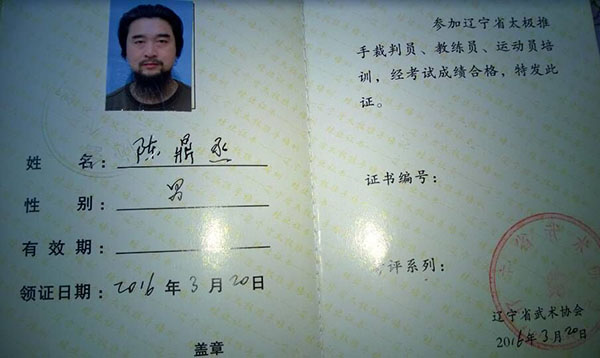 姓 名: 陈鼎丞
性 别: 男
有 效 期:
领证日期: 2016 年 3 月 20 日
盖章
参加辽宁省太极推
手裁判员、教练员、运动员培
训，经考试成绩合格，特发此
证。
证书编号:
评系列:
辽宁省武术协会
2016年3月20日